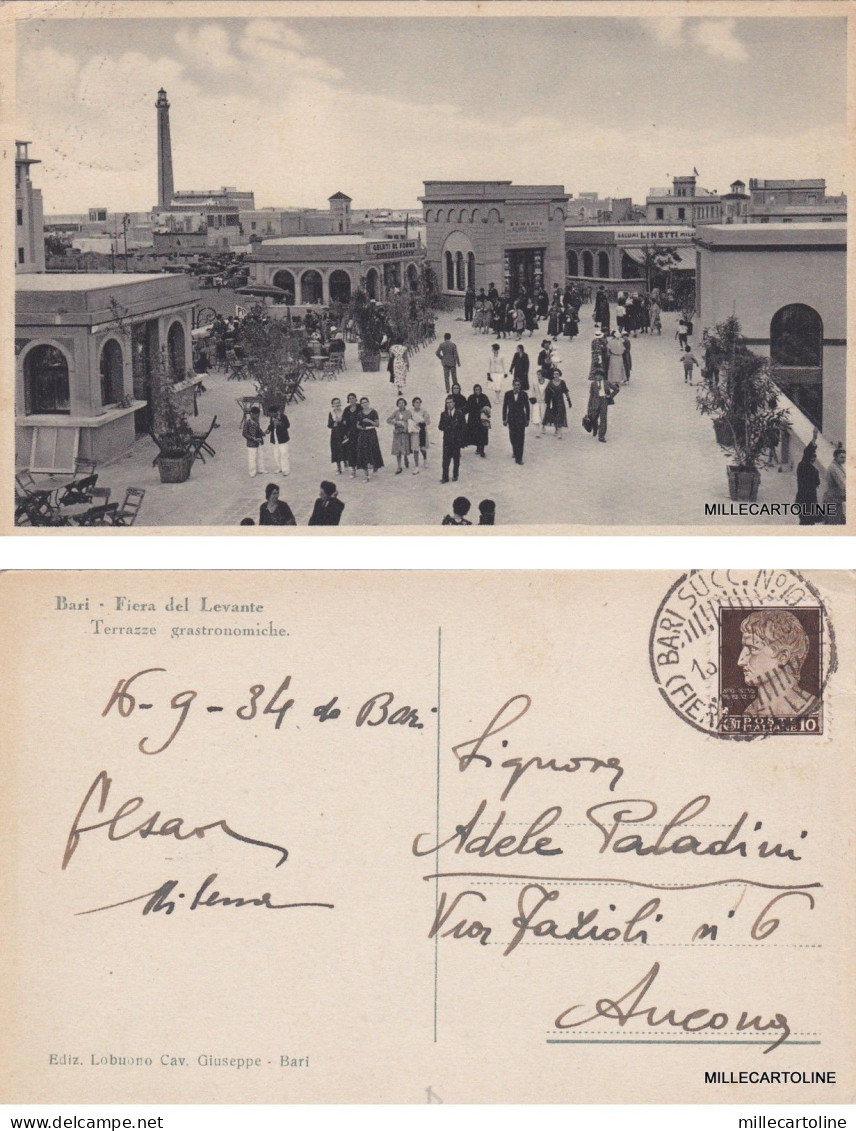 GELATI AL FORNO
SALUMI LINETTI MILA
MILLECARTOLINE
Bari - Fiera del Levante
Terrazze grastronomiche.
BARI SUCC. No 10
(FIERA DEL LE
POSTE
ITALIANE 10
16-9-34 da Bari
Cesar
Milena
Signora
Adele Paladini
Via Fazioli n 6
Ancona
Ediz. Lobuono Cav. Giuseppe - Bari
MILLECARTOLINE
delcampe.net
millecartoline